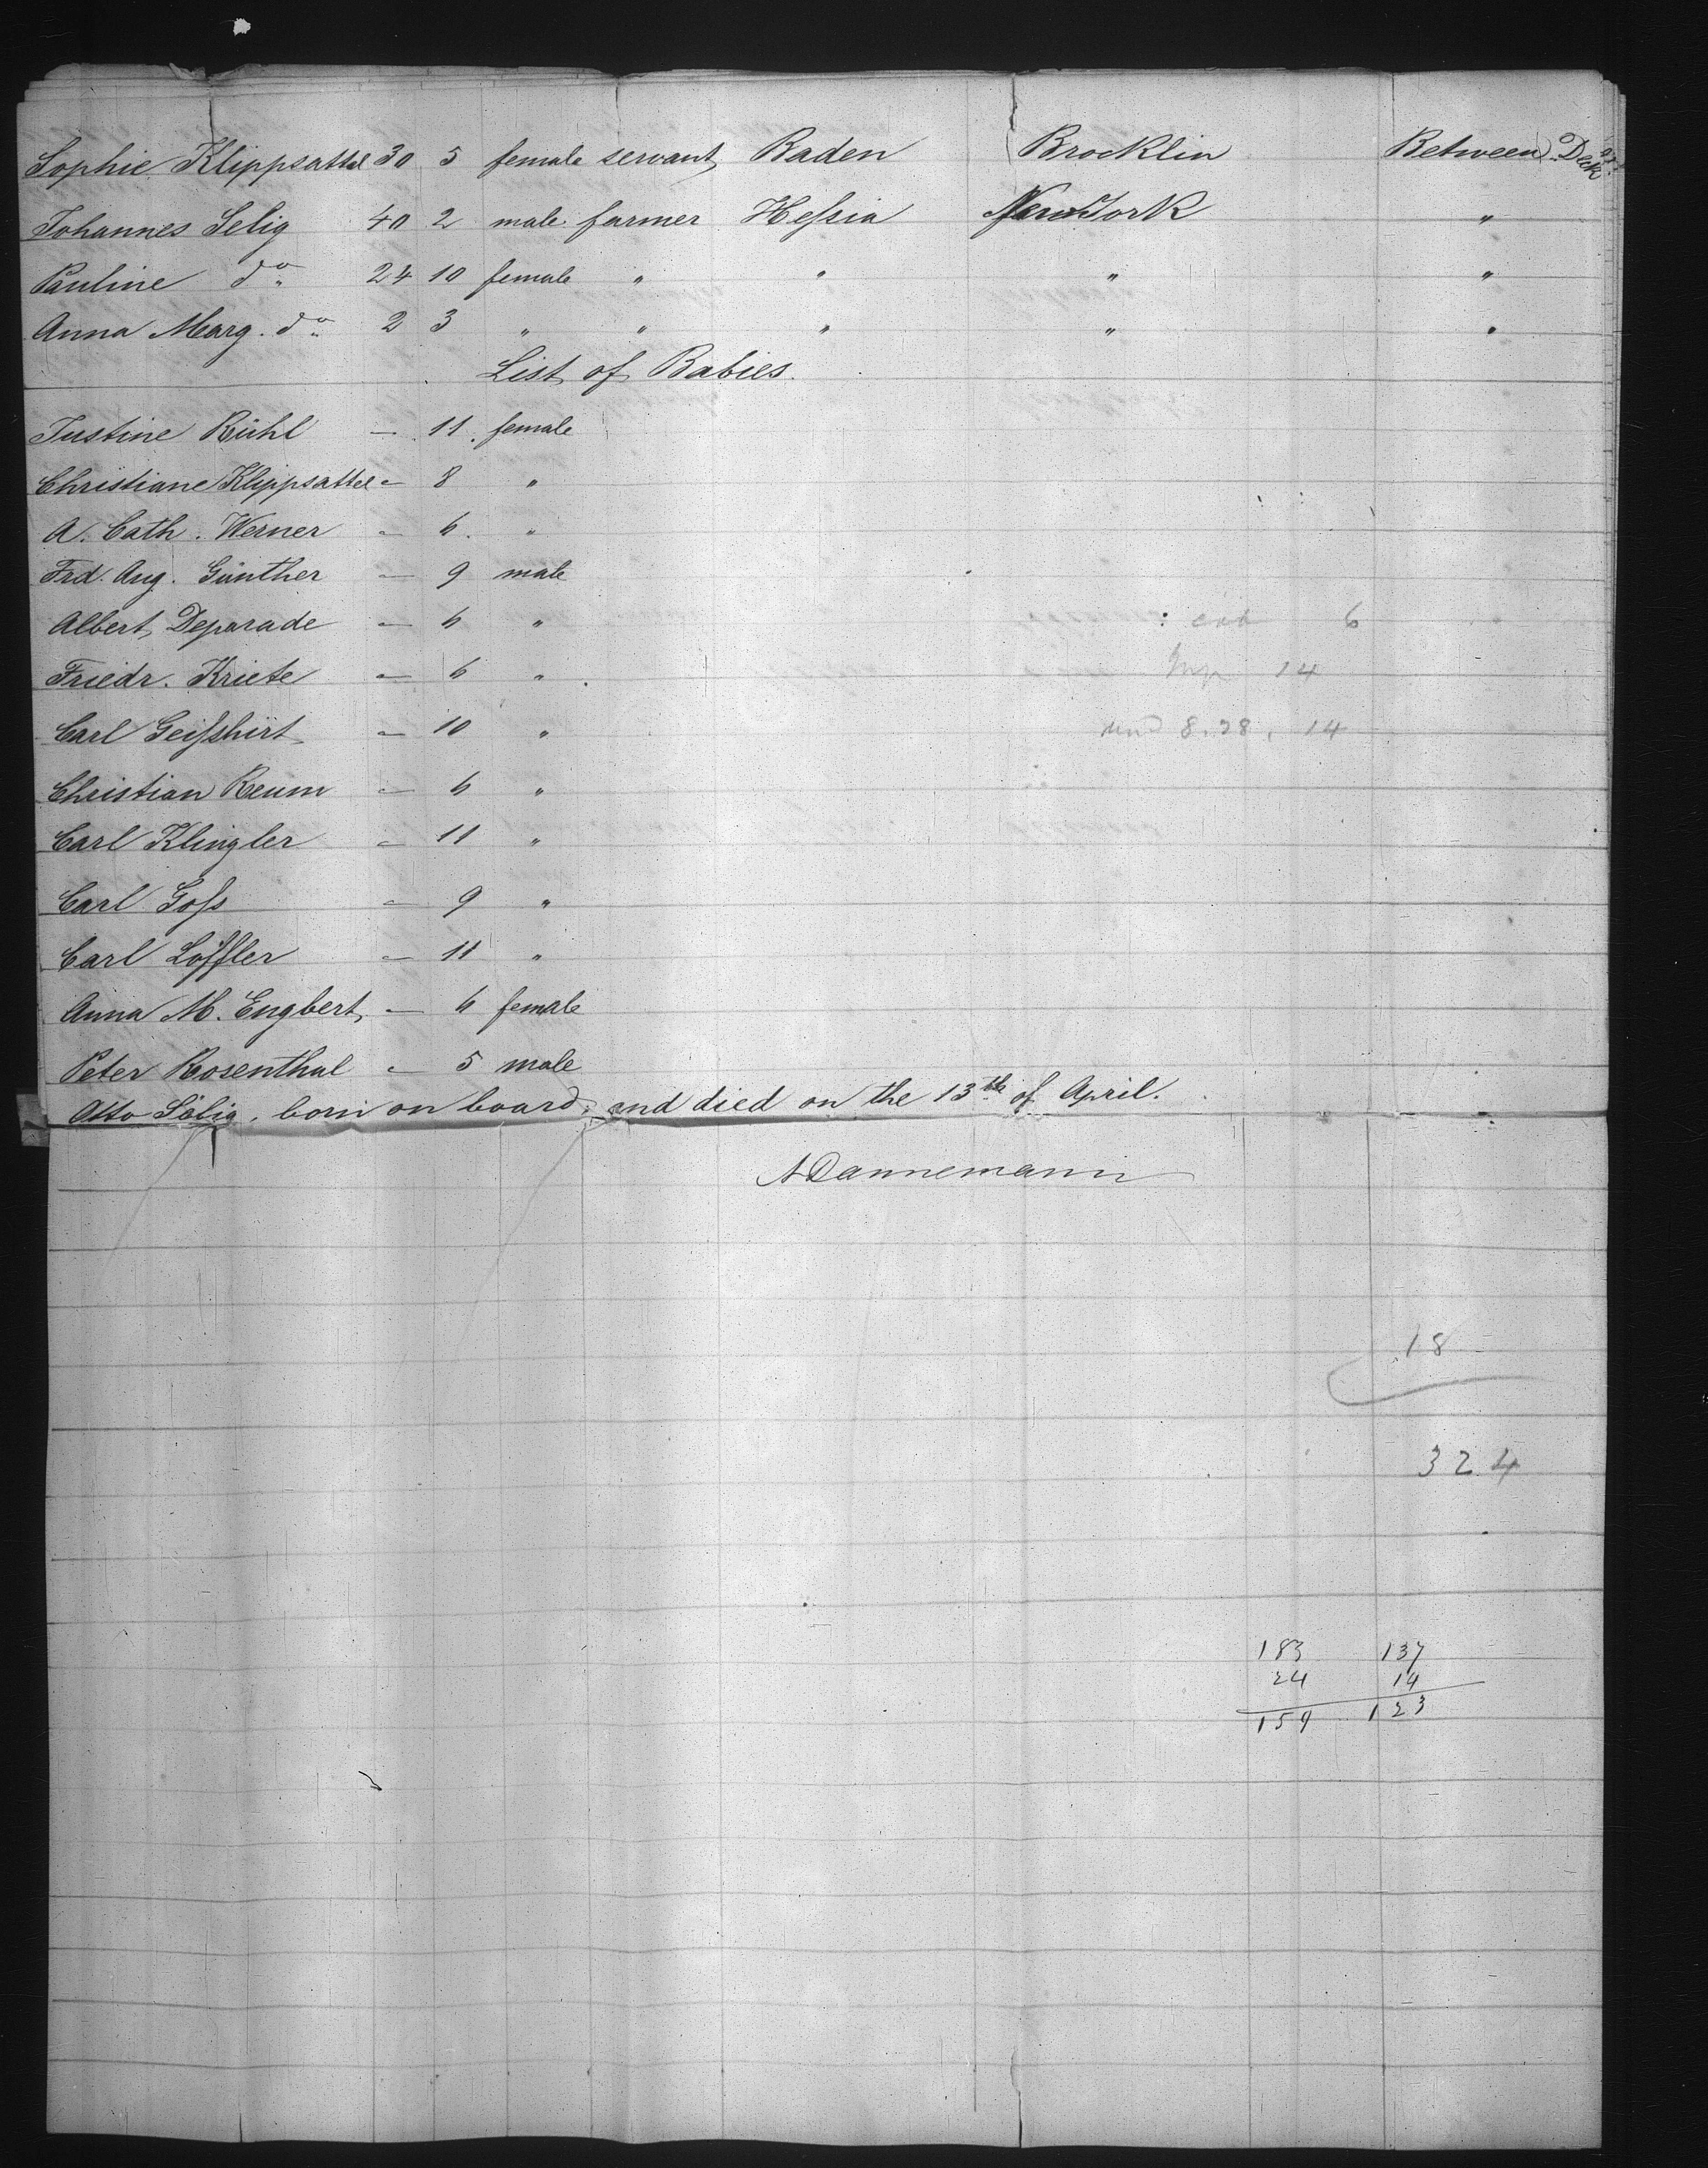 Sophie Klippsattel 30 5 female servant Baden Brocklin Between Deck
Johannes Selig 40 2 male farmer Heſsia New York "
Pauline do 24 10 female " " " "
Anna Marg. do 2 3 " " " " "
List of Babies.
Justine Rühl — 11. female
Christiane Klippsattel — 8 "
A. Cath. Werner — 6. "
Frd. Aug. Günther — 9 male
Albert Deparade — 6 " 6
Friedr. Kriete — 6 " 14
Carl Geiſshirt — 10 " und 8.28, 14
Christian Reum — 6 "
Carl Klingler — 11 "
Carl Goſs — 9 "
Carl Löffler — 11 "
Anna M. Engbert — 6 female
Peter Rosenthal — 5 male
Otto Sälig, born on board, and died on the 13th of April.
A Dannemann
18
324
183 137
24 14
159 123